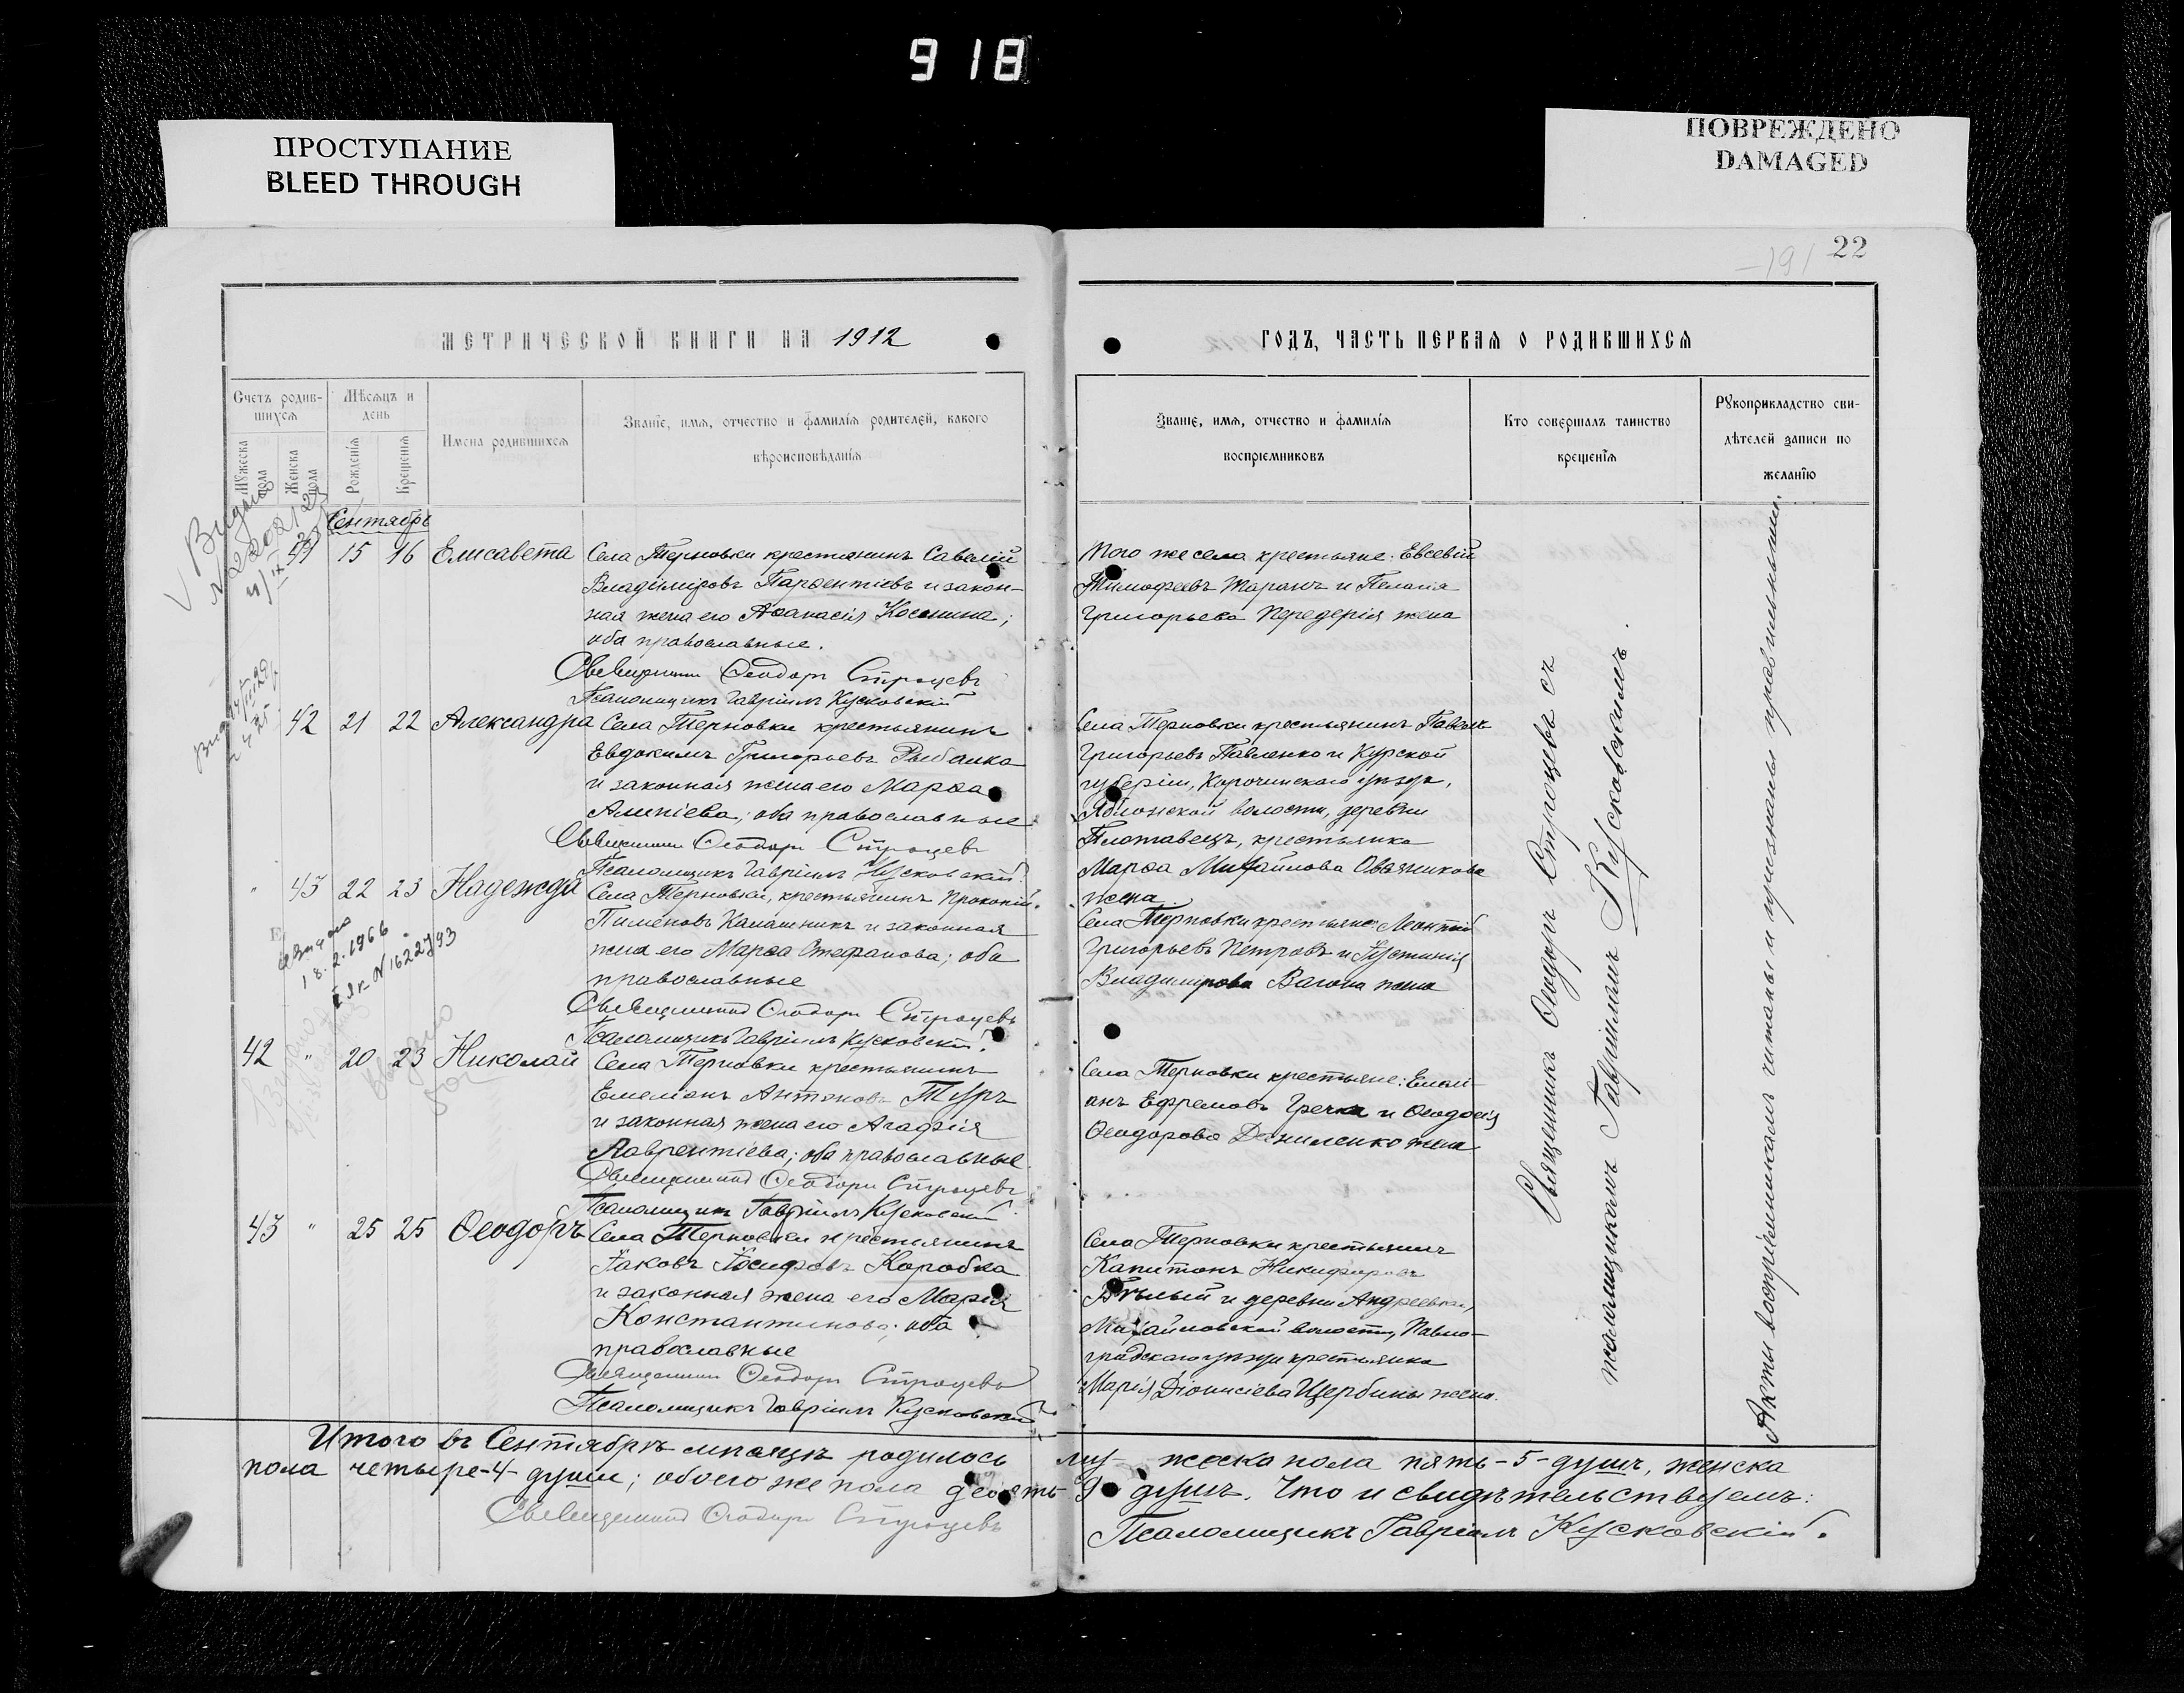 918
ПРОСТУПАНИЕ
BLEED THROUGH
ПОВРЕЖДЕНО
DAMAGED
22
191
МЕТРИЧЕСКОЙ КНИГИ НА 1912
Счетъ родив-
шихся
Мѣсяцъ и
день
Мужеска
пола
Женска
пола
Рожденія
Крещенія
Имена родившихся
Званіе, имя, отчество и фамилія родителей, какого
вѣроисповѣданія
Сентябрь
15 16 Елисавета Села Терновки крестьянинъ Савелій
Владиміровъ Парѳентіевъ и закон-
ная жена его Аѳанасія Космина;
оба православные.
Священникъ Ѳеодоръ Строцевъ
Псаломщикъ Гавріилъ Кусковскій
42 21 22 Александра Села Терновки крестьянинъ
Евдокимъ Григорьевъ Рыбалка
и законная жена его Марѳа
Алипіева; оба православные
Священникъ Ѳеодоръ Строцевъ
Псаломщикъ Гавріилъ Кусковскій
" 43 22 23 Надежда Села Терновки, крестьянинъ Прокопій
Пименовъ Калашникъ и законная
жена его Марѳа Стефанова; оба
православные
Священникъ Ѳеодоръ Строцевъ
Псаломщикъ Гавріилъ Кусковскій.
18.2.1966
42 " 20 23 Николай Села Терновки крестьянинъ
Емеліанъ Антоновъ Туръ
и законная жена его Агафія
Лаврентіева; оба православные
Священникъ Ѳеодоръ Строцевъ
Псаломщикъ Гавріилъ Кусковскій
43 " 25 25 Ѳеодоръ Села Терновки крестьянинъ
Іаковъ Іосифовъ Коробка
и законная жена его Марія
Константинова; оба
православные
Священникъ Ѳеодоръ Строцевъ
Псаломщикъ Гавріилъ Кусковскій
Итого въ Сентябрѣ мѣсяцѣ родилось
пола четыре-4-души; обоего же пола девять-
Священникъ Ѳеодоръ Строцевъ
ГОДЪ, ЧАСТЬ ПЕРВАЯ О РОДИВШИХСЯ
Званіе, имя, отчество и фамилія
воспріемниковъ
Кто совершалъ таинство
крещенія
Рукоприкладство сви-
дѣтелей записи по
желанію
Того же села крестьяне: Евсевій
Тимофеевъ Таранъ и Пелагія
Григорьева Передерія жена
Села Терновки крестьянинъ Павелъ
Григорьевъ Павленко и Курской
губерніи, Корочинскаго уѣзда,
Яблонской волости, деревни
Плотавецъ, крестьянка
Марѳа Михайлова Овсянникова
жена.
Села Терновки крестьяне: Леонтій
Григорьевъ Петровъ и Іустинія
Владимірова жена
Села Терновки крестьяне: Емелі-
анъ Ефремовъ Гречка и Ѳеодосія
Ѳеодорова Даниленко жена
Села Терновки крестьянинъ
Капитонъ Никифоровъ
Бѣлый и деревни Андреевки,
Михайловской волости, Павло-
градскаго уѣзда крестьянка
Марія Діонисіева Щербины жена.
Священникъ Ѳеодоръ Строцевъ съ
псаломщикомъ Гавріиломъ Кусковскимъ.
Акты воспріемникамъ читаны и признаны правильными.
му- жеска пола пять-5-душъ, женска
9 душъ. Что и свидѣтельствуемъ:
Псаломщикъ Гавріилъ Кусковскій.